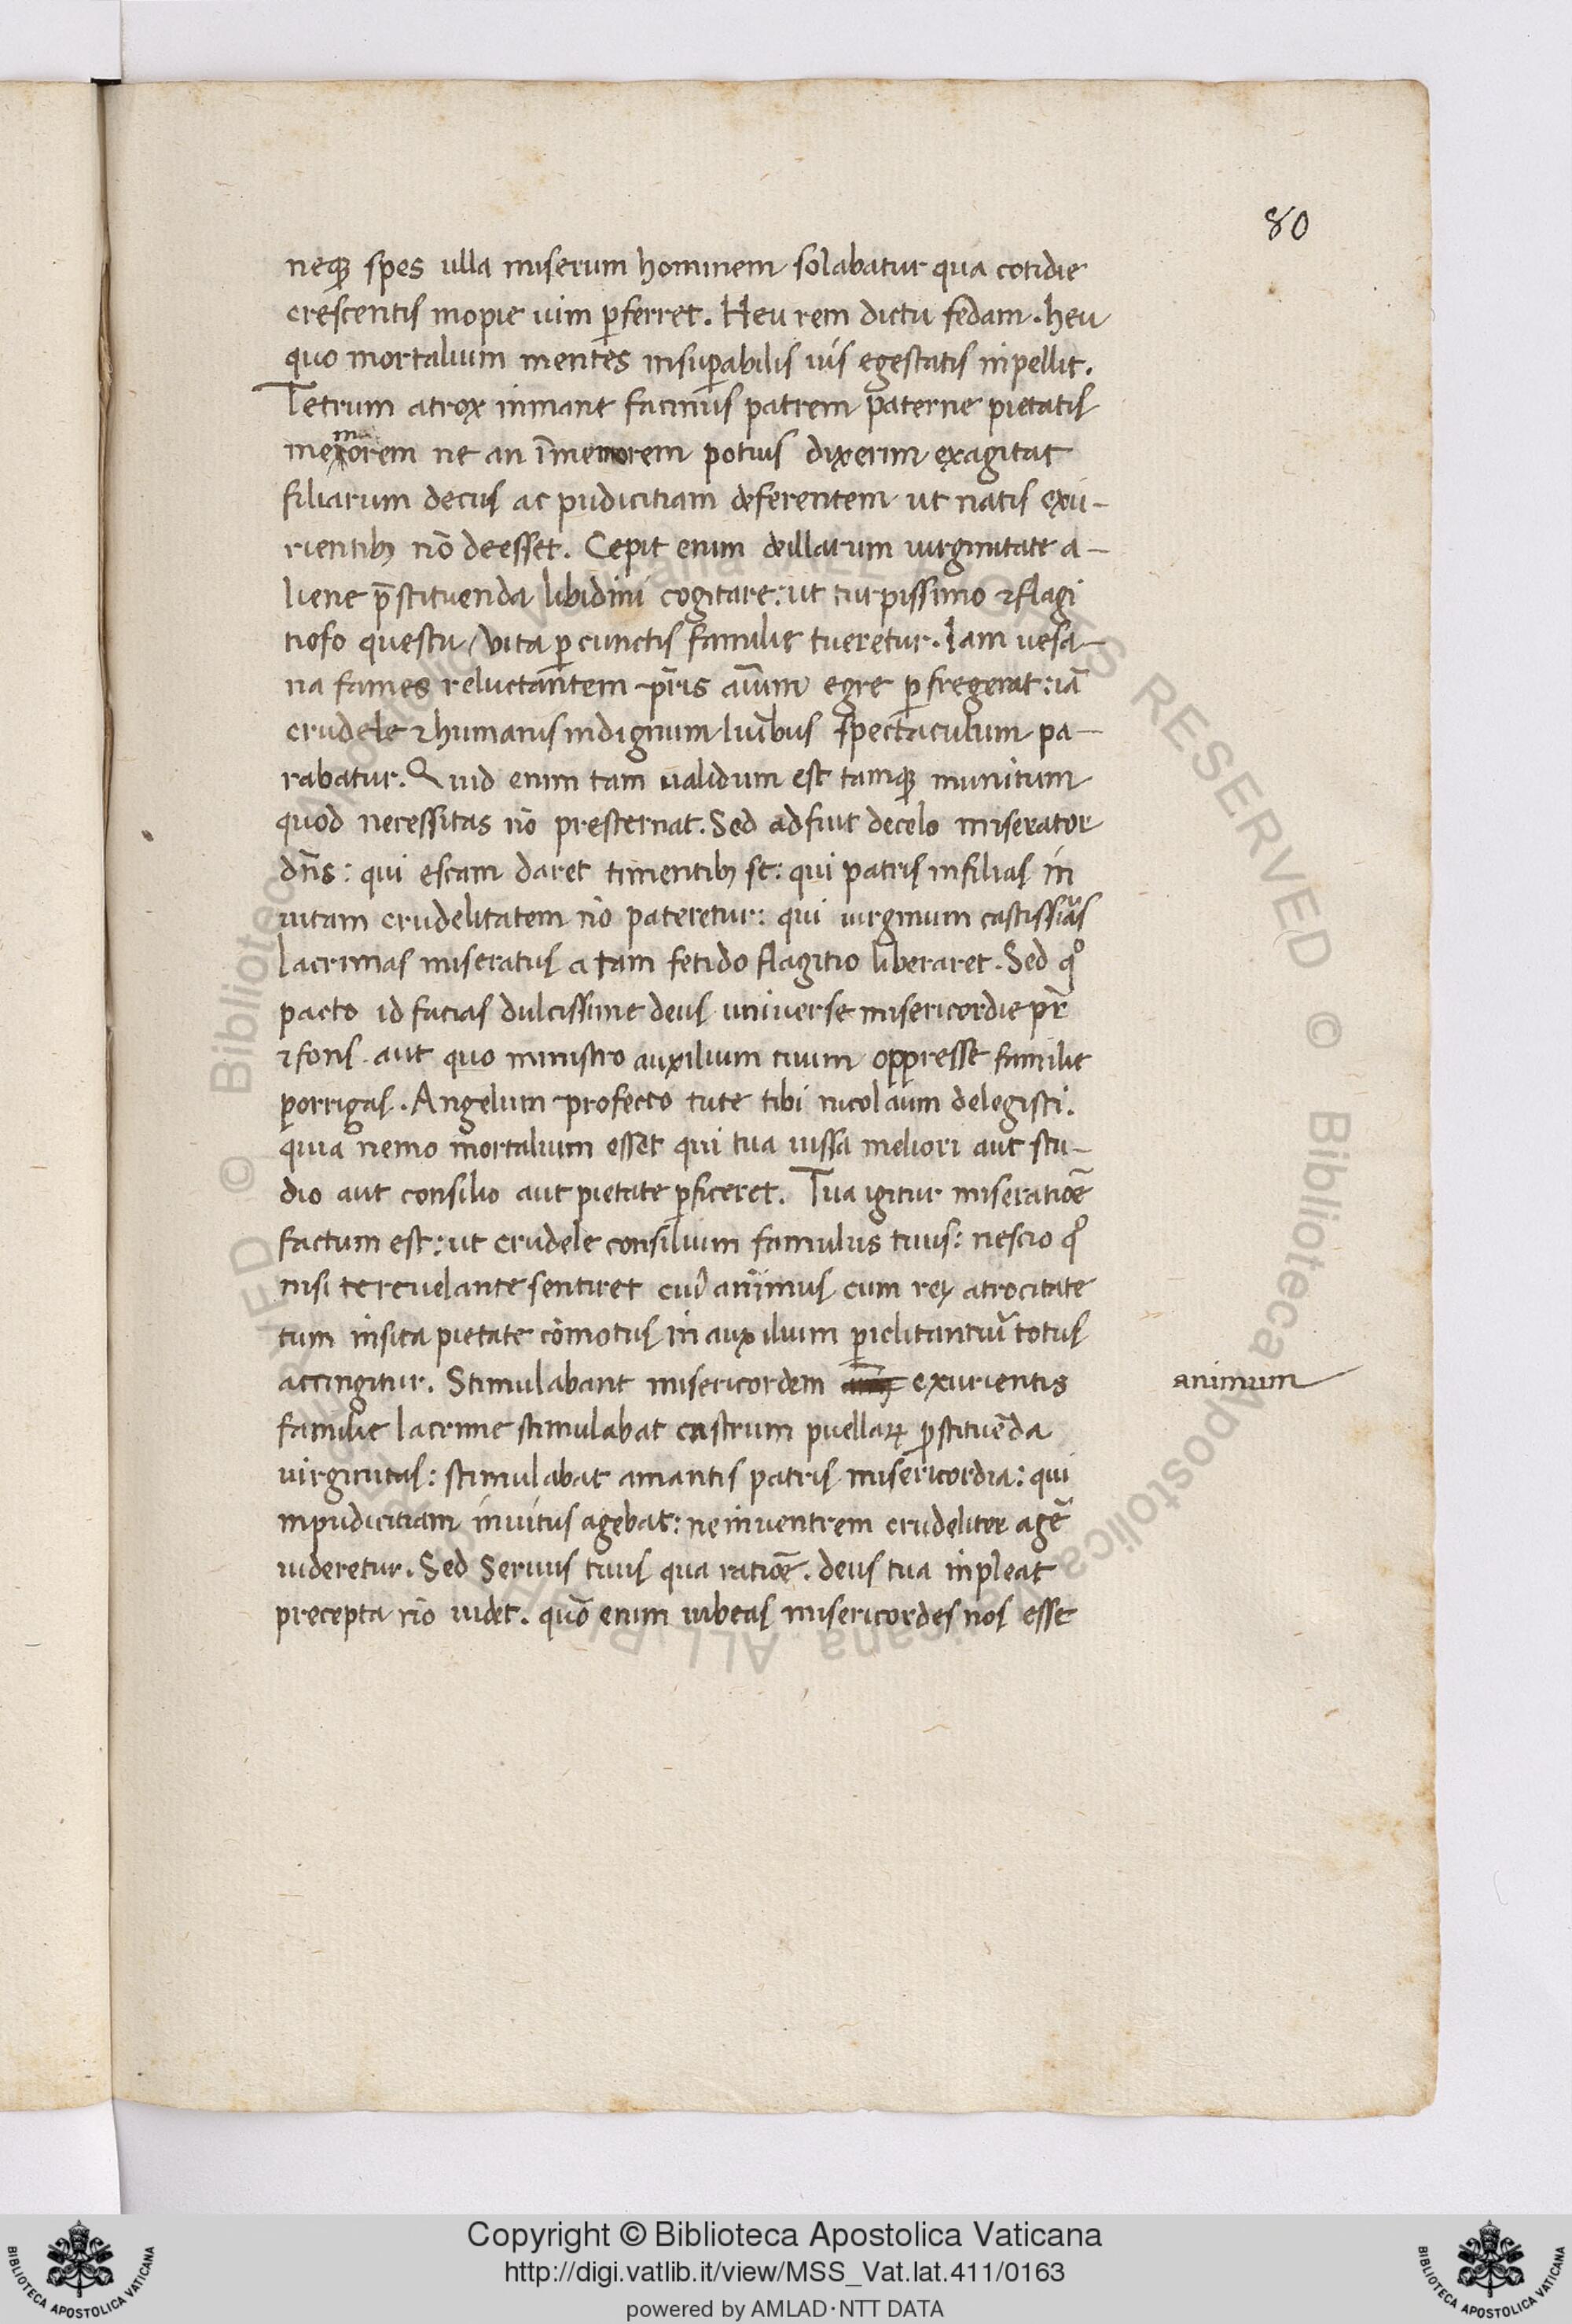 80
neqȝ spes ulla miserum hominem solabatur qua cotidie
crescentis inopie uim ꝑferret. Heu rem dictu fedam. heu
quo mortalium mentes insuꝑabilis uis egestatis inpellit.
Tetrum atrox inmane facinus patrem paterne pietatis
memorem ne an īmemorem potius dixerim exagitat
filiarum decus ac pudicitiam deferentem ut natis exu-
rientibȝ nō deesset. Cepit enim deillarum uirginitate a-
liene p̄stituenda libidini cogitare: ut turpissimo ⁊ flagi
tioso questu / vita ꝑ cunctis familie tueretur. Iam uesa-
na fames reluctantem pr̄is aīum egre ꝑ fregerat: iā
crudele ⁊ humanis indignum luībus spectaculum pa-
rabatur. Quid enim tam ualidum est tamqȝ munitum
quod necessitas nō presternat. Sed adfuit decelo miserator
dn̄s: qui escam daret timentibȝ se: qui patris infilias in
uitam crudelitatem nō pateretur: qui uirginum castissīas
lacrimas miseratus a tam fetido flagitio liberaret. Sed qͦ
pacto id facias dulcissime deus universe misericordie pr̄
⁊ fons. aut quo ministro auxilium tuum oppresse familie
porrigas. Angelum profecto tute tibi nicolaum delegisti.
quia nemo mortalium esset qui tua iussa meliori aut stu-
dio aut consilio aut pietate ꝑficeret. Tua igitur miseratiōe
factum est: ut crudele consilium famulus tuus: nescio qͦ
nisi te reuelante sentiret cui᷒ animus cum reꝝ atrocitate
tum insita pietate cōmotus in auxilium ꝑiclitantiū totus
accingitur. Stimulabant misericordem exurientis
animum
familie lacrime stimulabat castrum puellaꝝ ꝓstituēda
virginitas: stimulabat amantis patris misericordia: qui
inpudicitiam inuitus agebat: ne inuentrem crudeliter agē
uideretur. Sed Seruus tuus qua ratiōe. deus tua inpleat
precepta nō uidet. quō enim iubeas misericordes nos esse
Copyright © Biblioteca Apostolica Vaticana
http://digi.vatlib.it/view/MSS_Vat.lat.411/0163
powered by AMLAD·NTT DATA